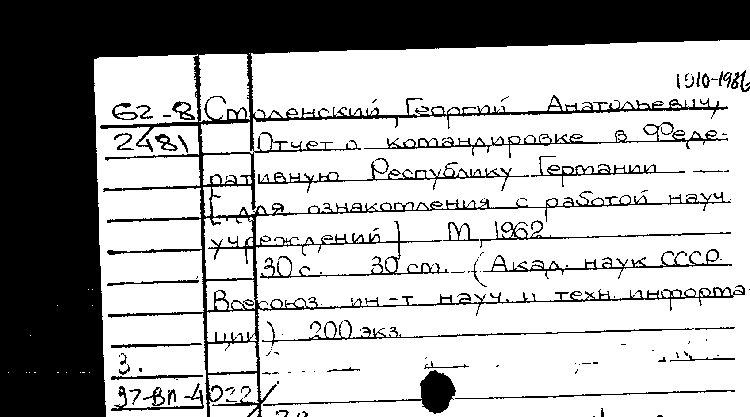 1910-1986
62-8 Смоленский, Георгий Анатольевич,
2481 Отчет о командировке в Феде-
ративную Республику Германии
[для ознакомления с работой науч.
учреждений] М, 1962
30 с. 30 см. (Акад. наук СССР.
Всесоюз ин-т науч. и техн. информа-
ции). 200 экз.
3.
97-ВП-4 022